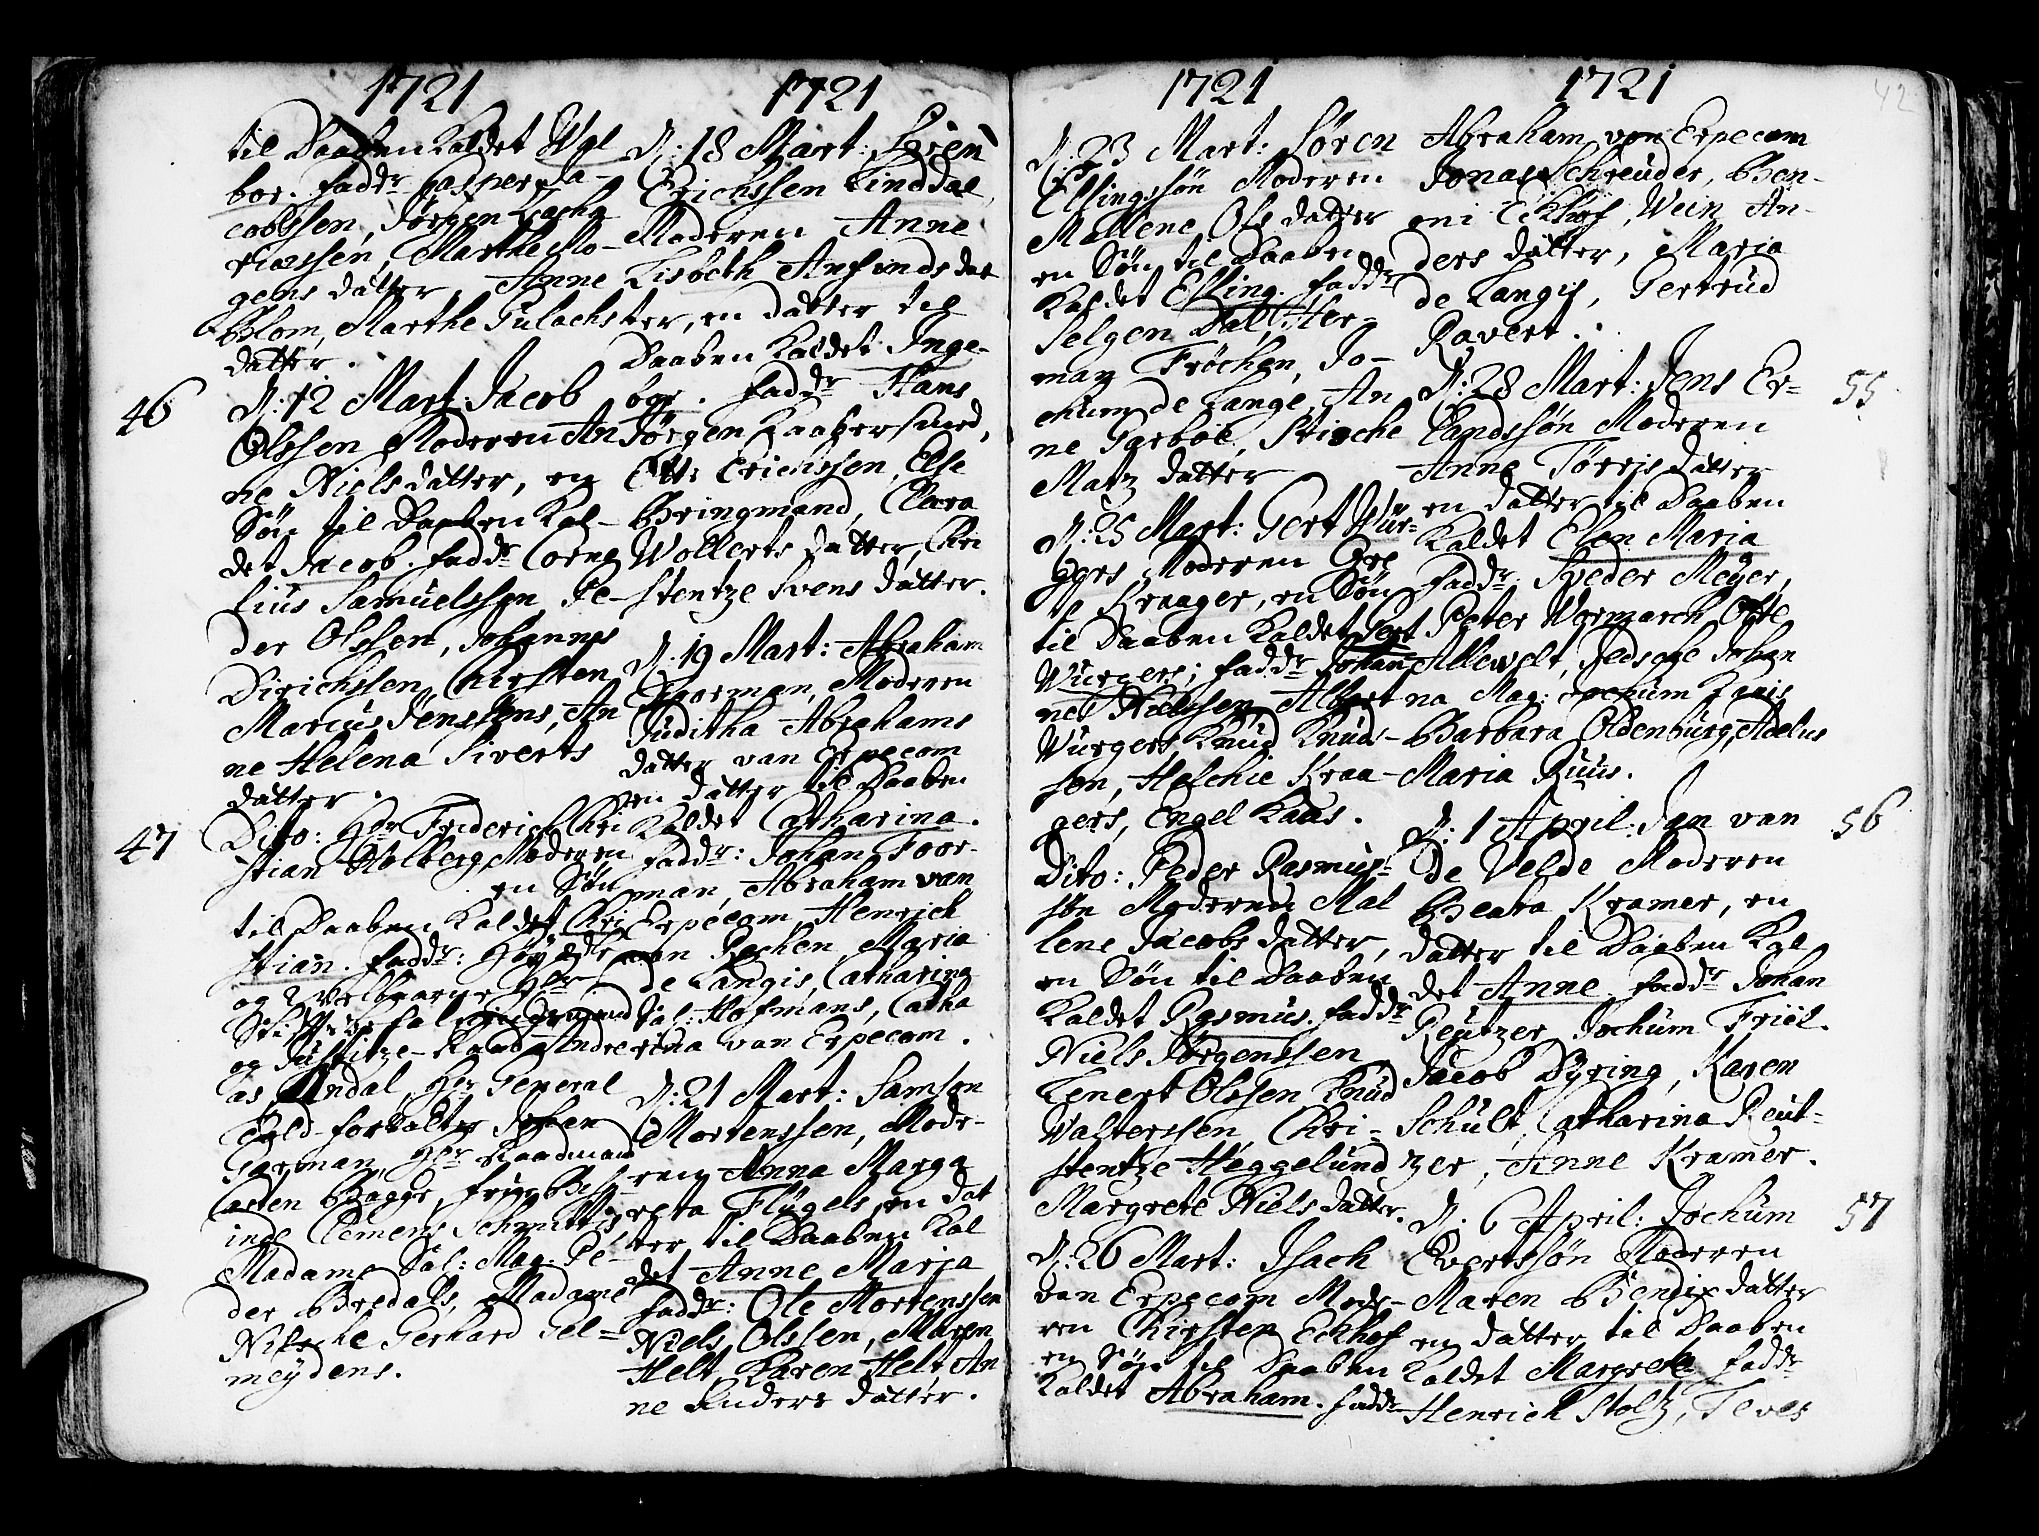 1721
til Daaben kaldet Wal
bor. fadd: Casper Ja-
cobssen, Jørgen Zacha
riæssen, Marthe Mo-
gens datter, Anne
Blom, Marthe Gulachs
datter.
46
D: 12 Mart: Jacob
Olssen Moderen An
ne Niels datter, en
Søn til Daaben kal-
det Jacob. fadd: Corne
lius Samuelssen Pe-
der Olssen, Johannes
Dirichssen, Chirsten
Marcus Jenssens, An
ne Helena Siverts
datter.
47
Dito: Hr Friderich Chri
stian Holberg, Moderen
en Søn
til Daaben kaldet Chri
stian. fadd: Høyædle
og Velbaarne Hr
og Justitze-Raad Andre
as Undal, Hr General
Told-forvalter Johan
Garman, Hr Raadmand
Casten Bagge,
inde Clemens Schmitts
Madame Sal: Mag: Pe-
der Bredals, Madame
Nitsche Gerhard Gel=
meydens.
1721
D: 18 Mart: Søren
Erichssen Linddal,
Moderen Anne
Lisbeth Anfinds dat
ter, en datter til
Daaben kaldet Inge-
bor. fadd: Hans
Jørgen Kaabersmed,
Otte Erichssen, Else
Bringmand, Clara
Wollerts datter, Chri
stentze Svens datter.
D: 19 Mart: Abraham
Foorman, Moderen
Juditha Abrahams
datter van Erpecom
en datter til Daaben
kaldet Catharina.
fadd: Johan Foor-
man, Abraham van
Erpecom, Henrich
van Rechen, Maria
de Langis, Catharina
Sal: Hofmans, Catha
rina van Erpecom.
D: 21 Mart: Samson
Mortenssen, Mode-
ren Anna Marga
reta Flügels, en dat
ter til Daaben kal
det Anne Maria
fadd: Ole Mortenssen
Niels Olssen, Maren
Helt, Karen Helt, An
ne Anders datter.
1721
D: 23 Mart: Søren
Ellingssøn Moderen
Mallene Ols datter
en Søn til Daaben
kaldet Elling. fadd:
Selgen Dal, Her-
man Frøchen, Jo-
chum de Lange, An
ne Garboe, Stinche
Matz datter
D: 25 Mart: Gert Wür-
gers Moderen Gre
te Kraager, en Søn
til Daaben kaldet Gert
Würgers; fadd: Johan
nes Nielssen, Albert
Würgers, Knud Knuds-
søn, Helchie Kraa-
gers, Engel Kaas.
Dito: Peder Rasmus-
søn Moderen Mal
lene Jacobs datter,
en Søn til Daaben
kaldet Rasmus. fadd:
Niels Jørgenssen
Lenert Olssen Knud
Walterssen, Chri-
stentze Heggelund
Margrete Niels datter.
D: 26 Mart: Isach
van Erpecom Mode-
ren Chirsten Eckhof
en Søn til Daaben
kaldet Abraham. fadd:
1721
42
Abraham van Erpecom
Jonas Schreuder, Ben-
oni Eckhof, Wein An-
ders datter, Maria
de Langis, Gertrud
Ravert.
D: 28 Mart: Jens Er-
55
landssøn Moderen
Anne Tørris datter
en datter til Daaben
kaldet Elen Maria
fadd: Sveder Meyer,
Peter Wormarch, Otte
Allewelt, Jedsche Johan
na Mag: Jochum Zanis
Barbara Oldenburg, Adelus
Maria Ruus.
D: 1 April: Jan van
56
de Velde Moderen
Beata Kramer, en
datter til Daaben kal
det Anne. fadd: Johan
Reutzer, Jochum Friel.
Jacob Dyring, Karen
Schult, Catharina Reut-
zer, Anne Kramer.
D: 6 April: Jochum
57
Evertssøn Moderen
Maren Bendix datter
en datter til Daaben
kaldet Margrete fadd:
Henrich Stoltz, Teves